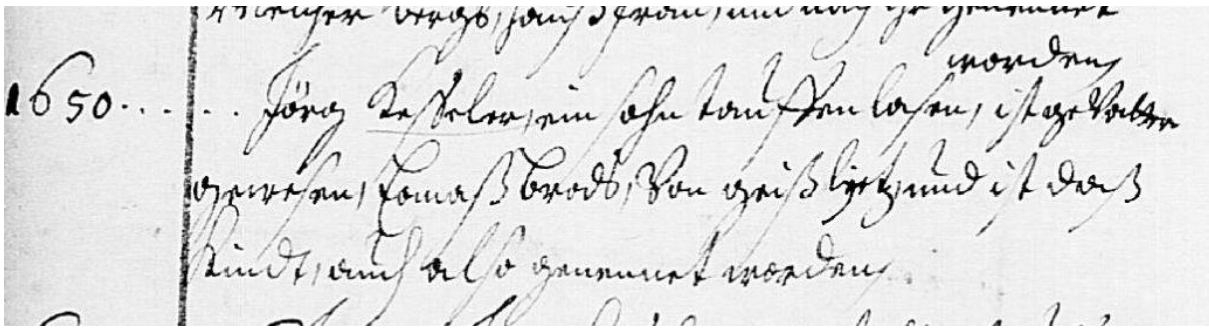 Melcher bergs, haußfrau, und nach ihr genennet
worden,
1650..... Jörg Kesseler, ein sohn tauffen lasen, ist gevatter
gewesen, Tomaß brods, Von geißlitz, und ist daß
Kindt, auch also genennet worden,